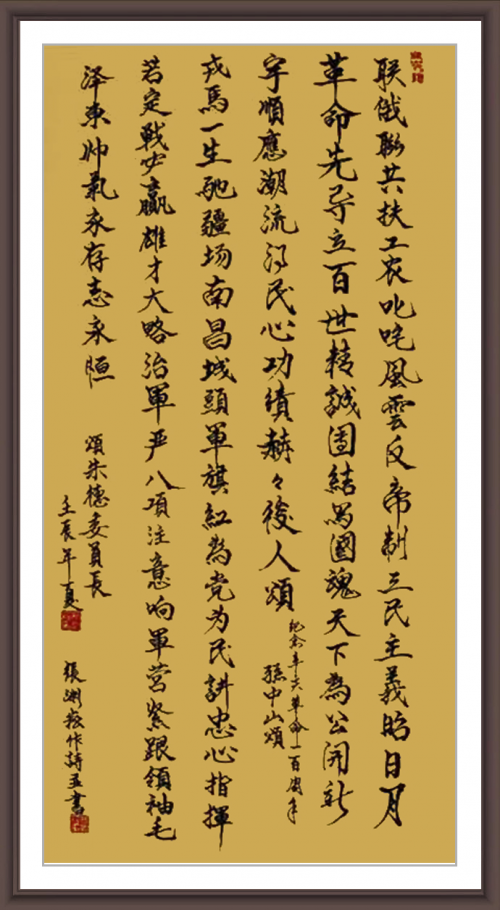 联俄聯共扶工农叱咤風雲反帝制三民主義昭日月
革命先导立百世精誠团結為國魂天下為公開新
宇順應潮流得民心功績赫々後人頌
紀念辛亥革命一百周年
孫中山頌
戎馬一生馳疆场南昌城頭軍旗紅為党为民讲忠心指揮
若定戰必贏雄才大略治軍严八項注意响軍营紧跟領袖毛
泽東帅氣永存志永恒
頌朱德委員長
壬辰年夏
張渊
作詩並書